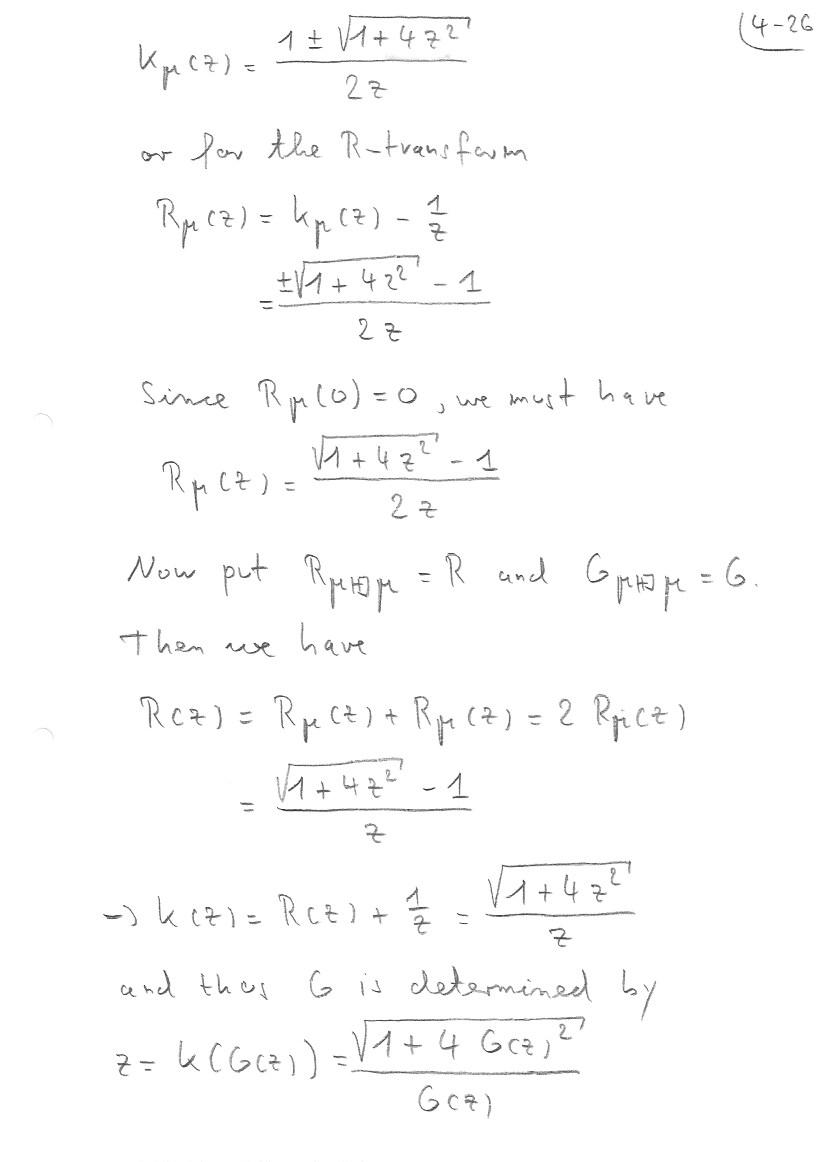 4-26
K_μ(z) = (1 ± √(1 + 4z²)) / 2z
or for the R-transform
R_μ(z) = K_μ(z) - 1/z
= (±√(1 + 4z²) - 1) / 2z
Since R_μ(0) = 0, we must have
R_μ(z) = (√(1 + 4z²) - 1) / 2z
Now put R_μ⊞μ = R and G_μ⊞μ = G.
Then we have
R(z) = R_μ(z) + R_μ(z) = 2 R_μ(z)
= (√(1 + 4z²) - 1) / z
→ K(z) = R(z) + 1/z = √(1 + 4z²) / z
and thus G is determined by
z = K(G(z)) = √(1 + 4 G(z)²) / G(z)